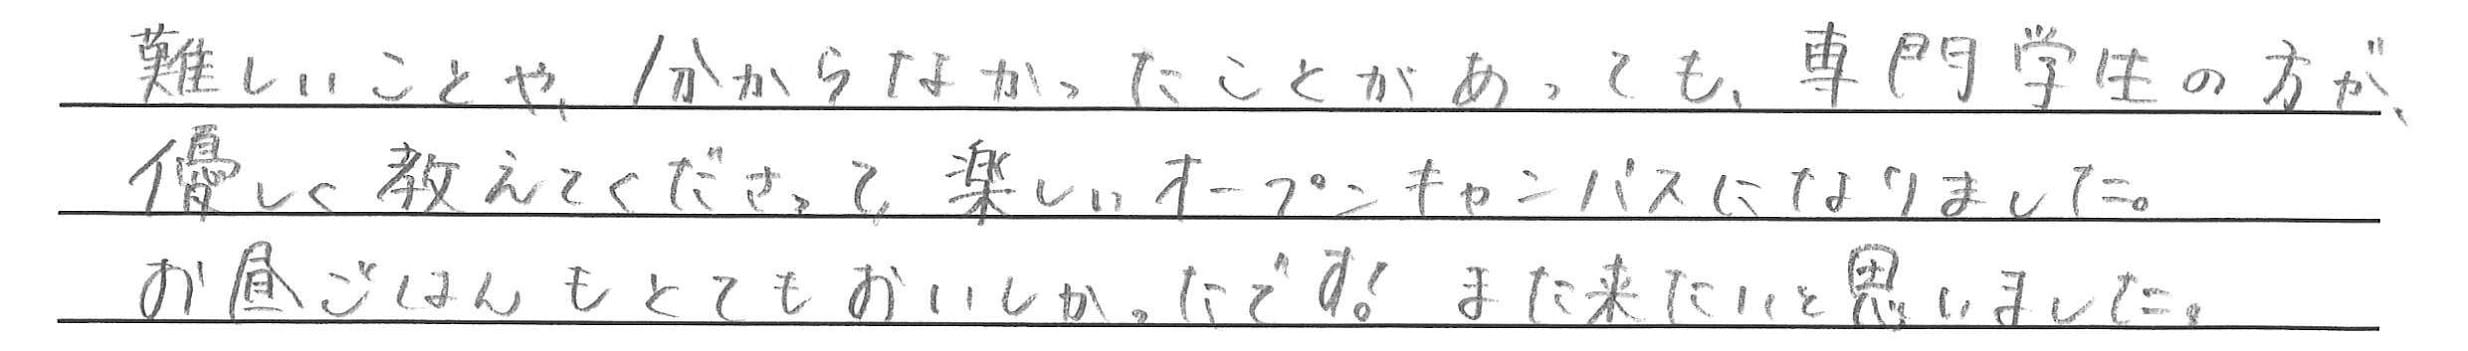 難しいことや、分からなかったことがあっても、専門学生の方が、
優しく教えてくださって、楽しいオープンキャンパスになりました。
お昼ごはんもとてもおいしかったです！また来たいと思いました。